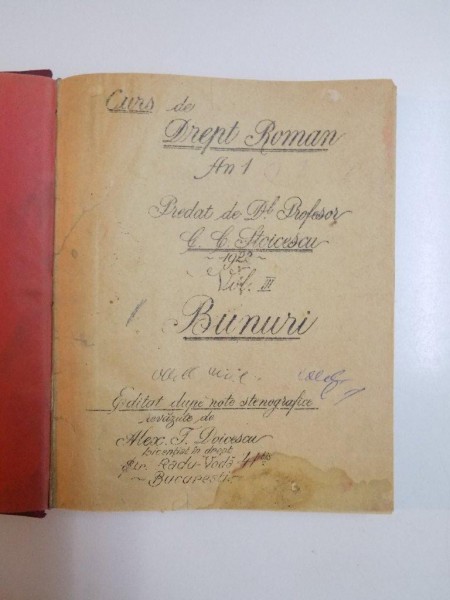 Curs de
Drept Roman
An 1
Predat de Dl Profesor
C. C. Stoicescu
~ 1922 ~
Vol. III
Bunuri
Editat dupe note stenografice
revăzute de
Alex. T. Doicescu
licențiat în drept
Str. Radu-Vodă
~ București ~